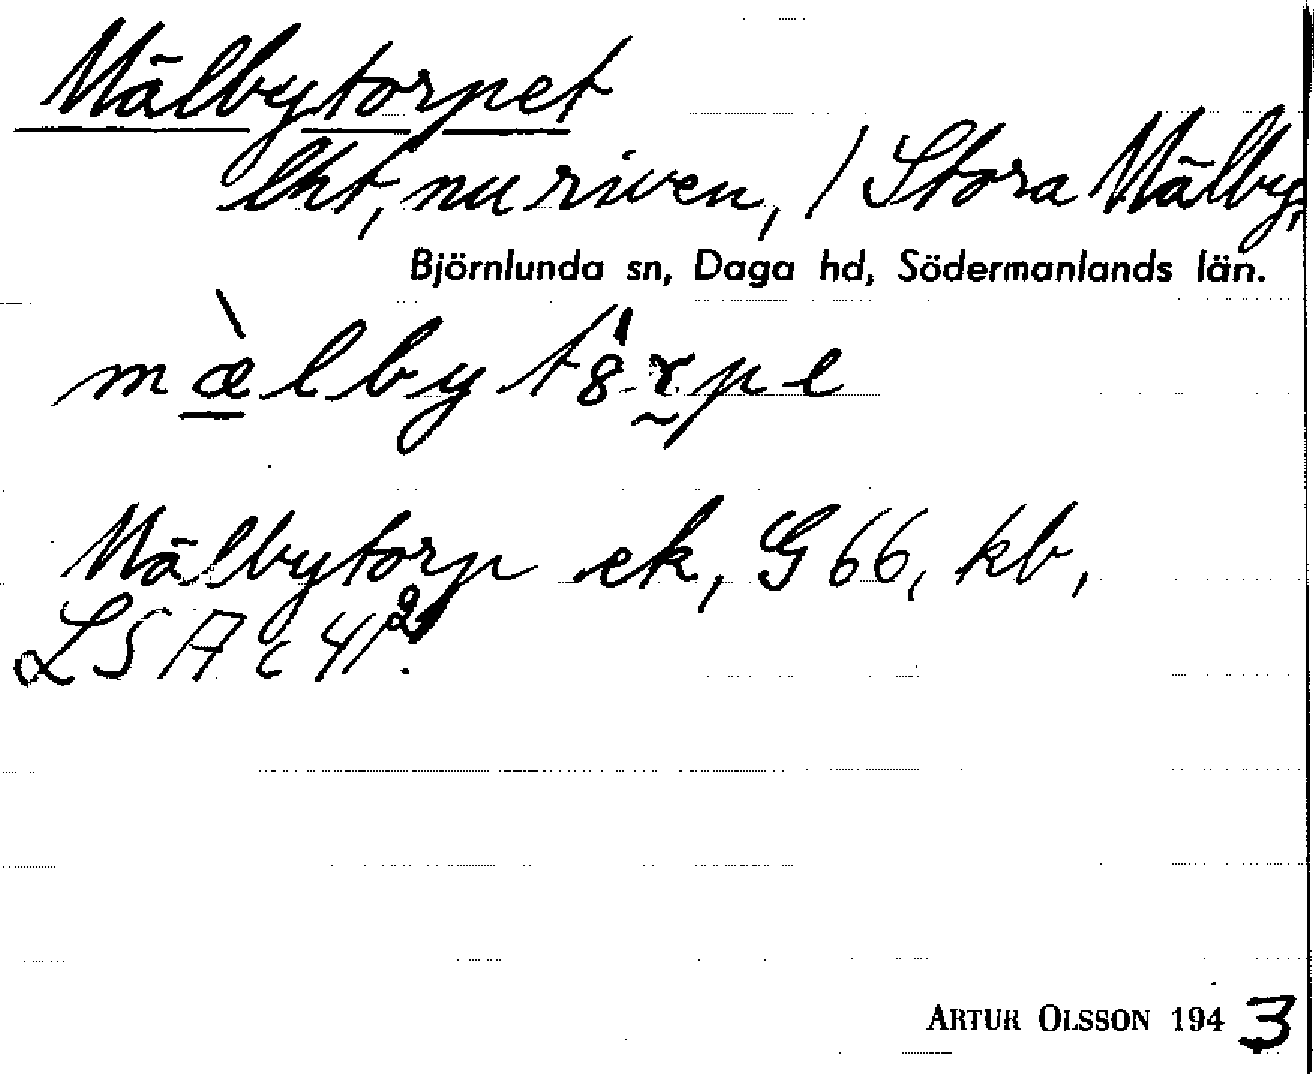 Mälbytorpet
lht, nu riven, / Stora Mälby,
Björnlunda sn, Daga hd, Södermanlands län.
mæ̀lbyt8́rpe
Mälbytorp ek, G 66, kb,
LSA c 41².
ARTUR OLSSON 1943